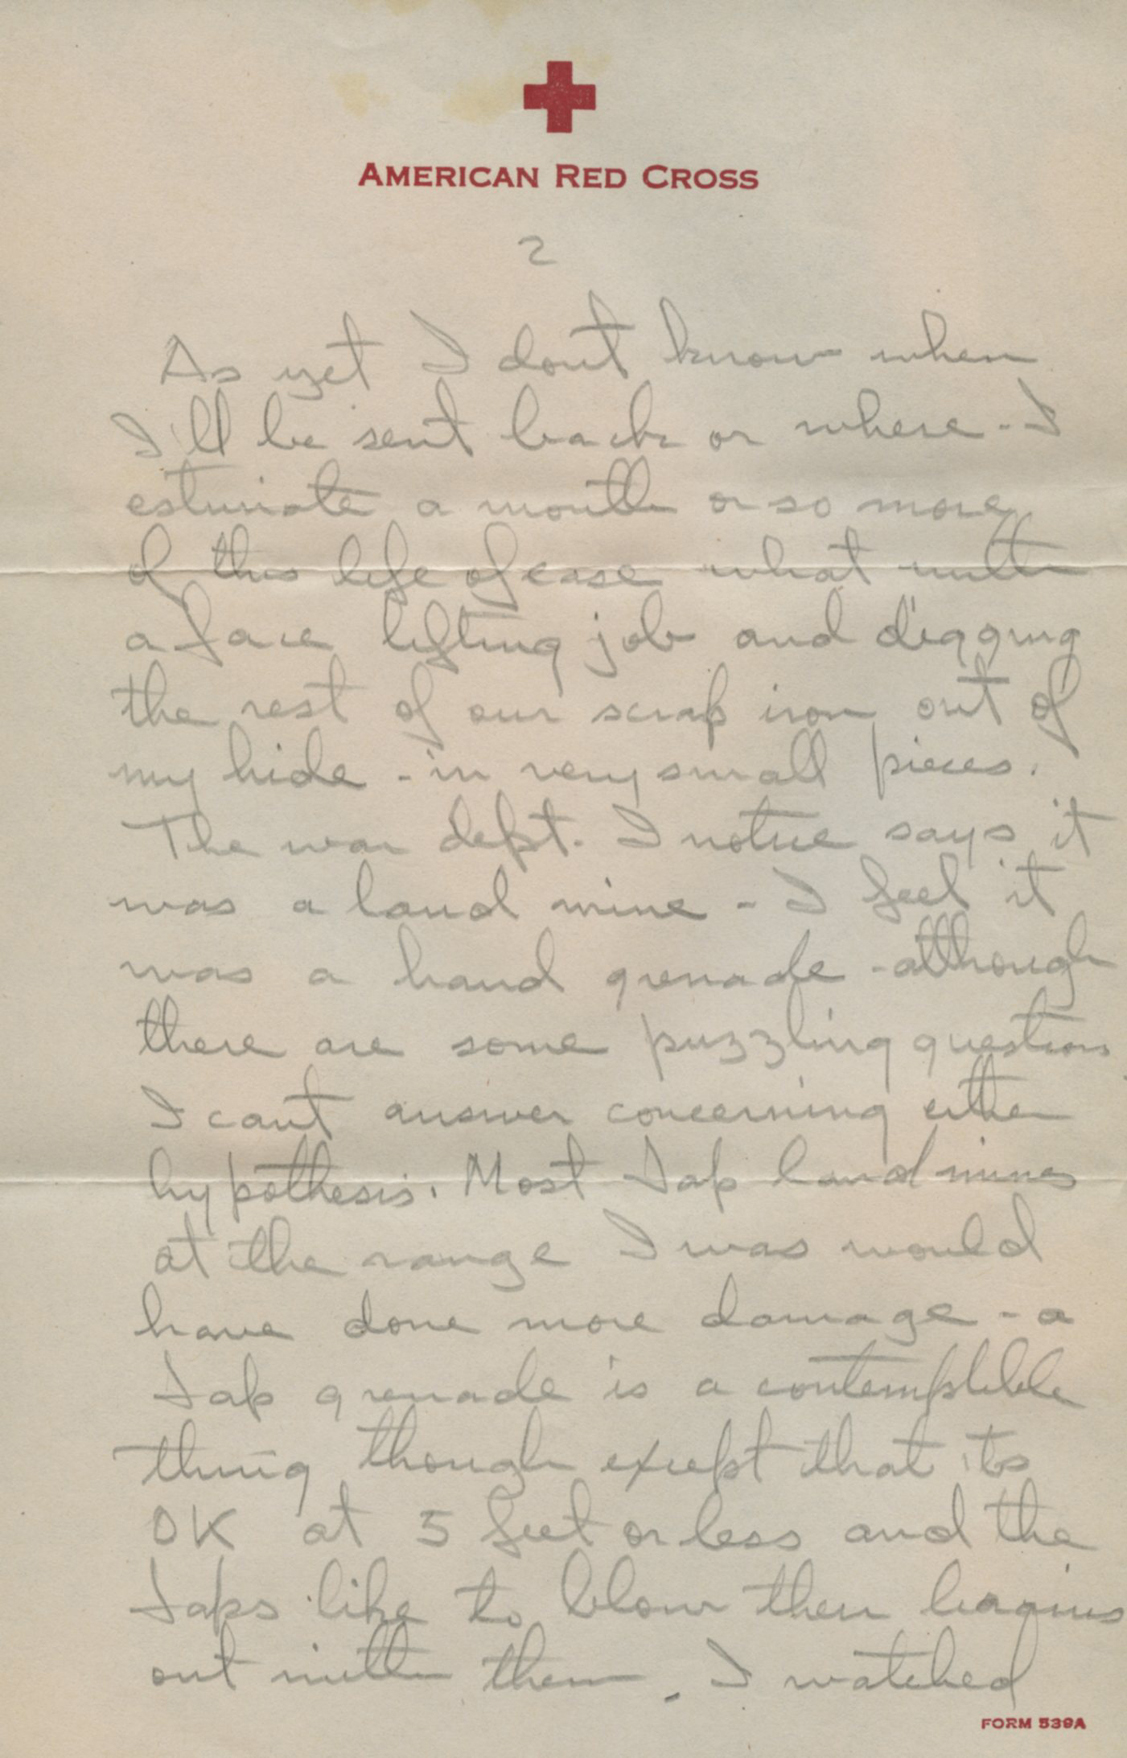 AMERICAN RED CROSS
2
As yet I dont know when
I'll be sent back or where - I
estimate a month or so more
of this life of ease what with
a face lifting job and digging
the rest of our scrap iron out of
my hide - in very small pieces.
The war dept. I notice says it
was a land mine - I feel it
was a hand grenade - although
there are some puzzling questions
I cant answer concerning either
hypothesis. Most Jap land mines
at the range I was would
have done more damage - a
Jap grenade is a contemptible
thing though except that its
OK at 5 feet or less and the
Japs like to blow their brains
out with them. I watched
FORM 539A